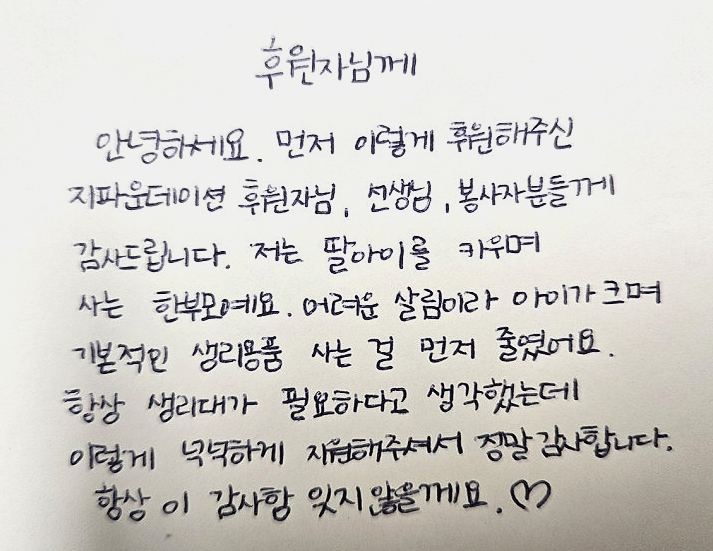 후원자님께
안녕하세요. 먼저 이렇게 후원해주신
지파운데이션 후원자님, 선생님, 봉사자분들께
감사드립니다. 저는 딸아이를 키우며
사는 한부모예요. 어려운 살림이라 아이가 크며
기본적인 생리용품 사는 걸 먼저 줄였어요.
항상 생리대가 필요하다고 생각했는데
이렇게 넉넉하게 지원해주셔서 정말 감사합니다.
항상 이 감사함 잊지 않을게요. ♡